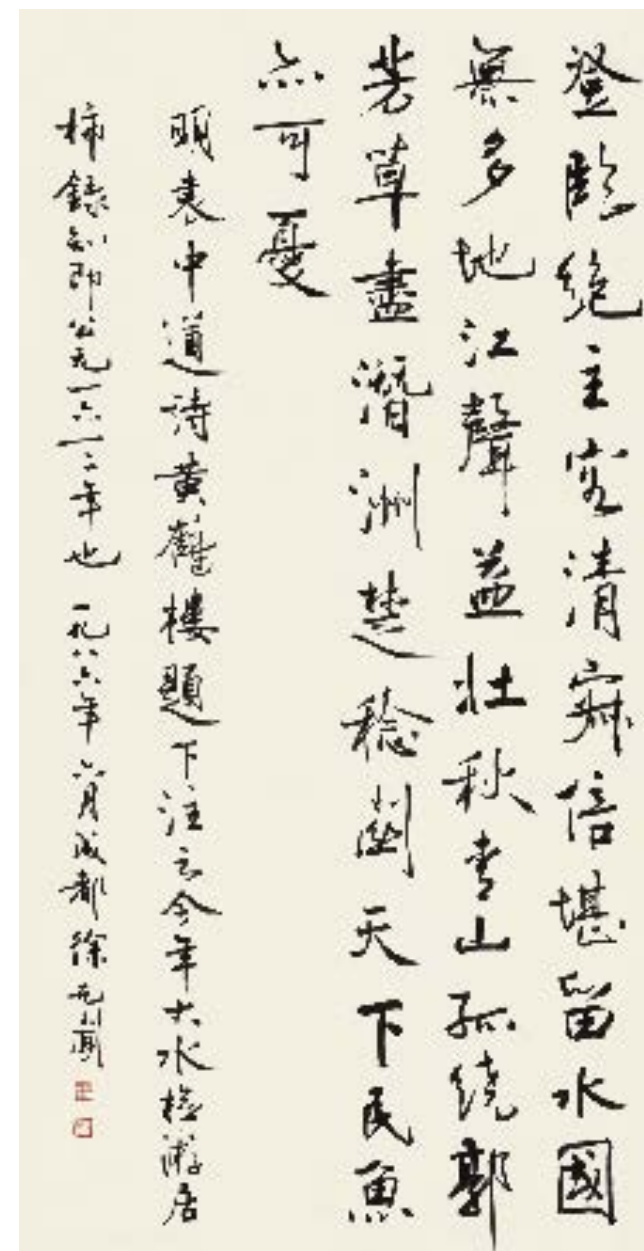 登臨絶主客清寂倍堪留水國
無多地江聲益壯秋青山孤繞郭
芳草盡潛洲楚稔關天下民魚
亦可憂
明袁中道詩黄鶴樓題下注云今年大水檢游居
柿錄知即公元一六一二年也 一九八六年六月成都徐无聞